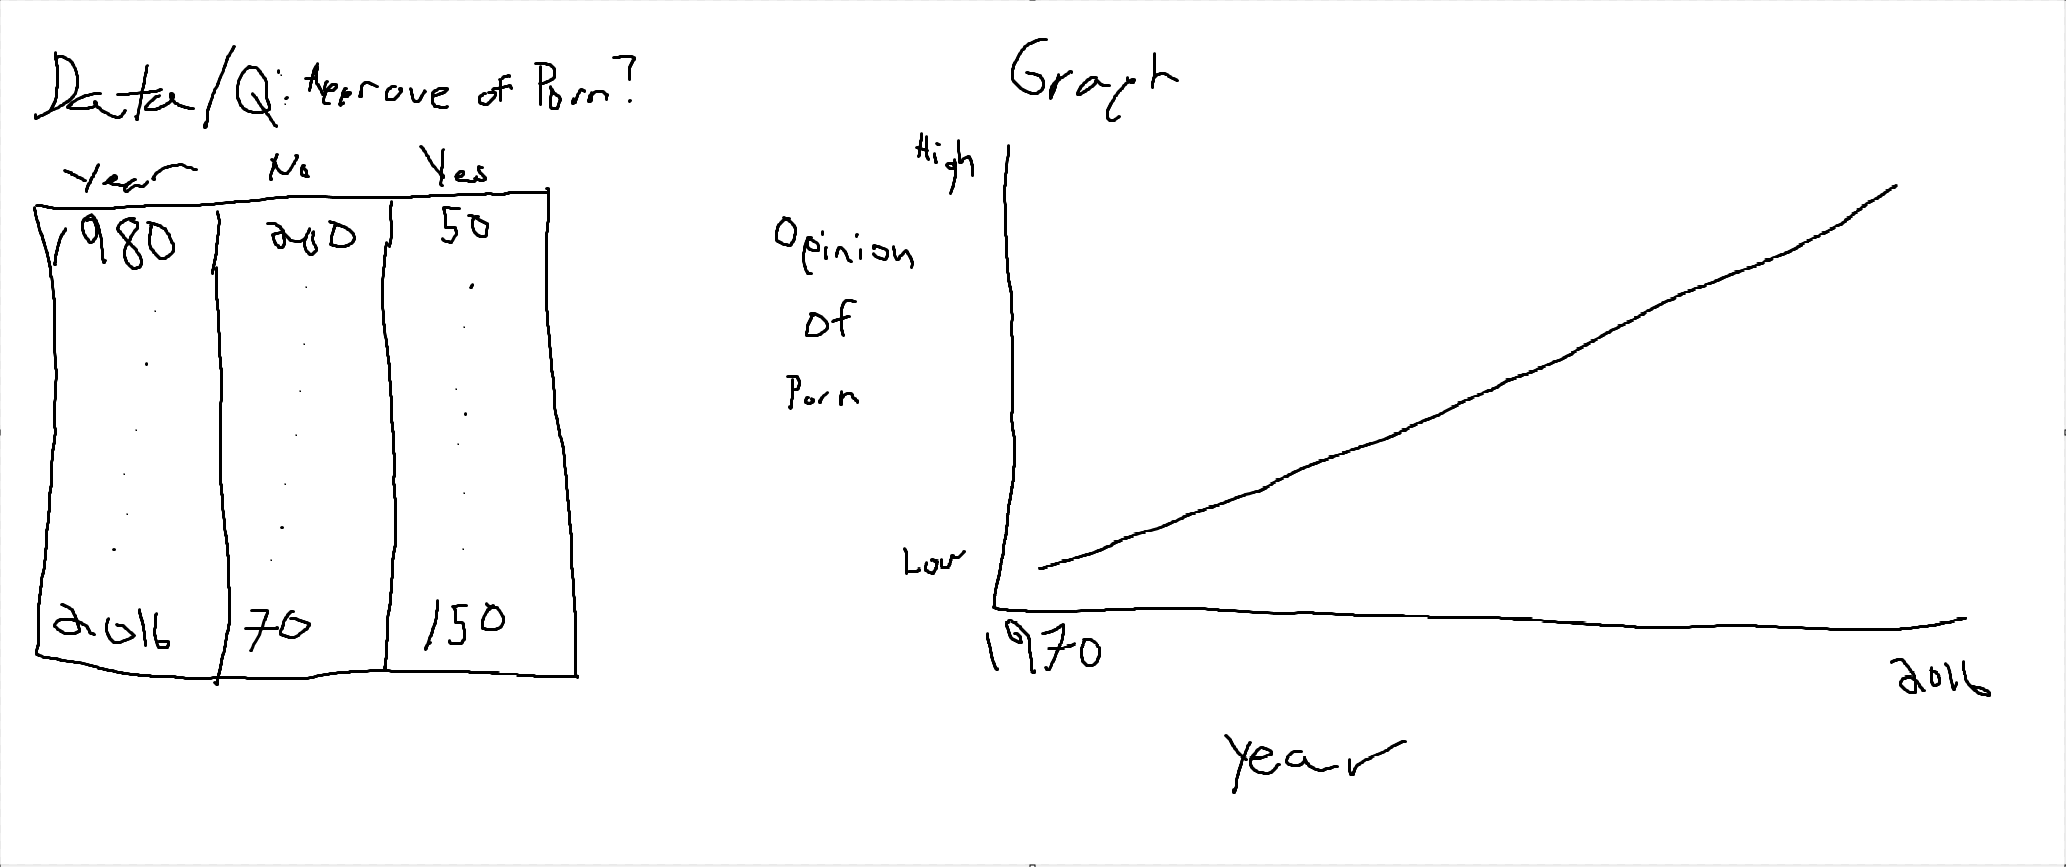 Data/Q: Approve of Porn?
Year No Yes
1980 200 50
2016 70 150
Graph
High
Opinion
Of
Porn
Low
1970
2016
Year